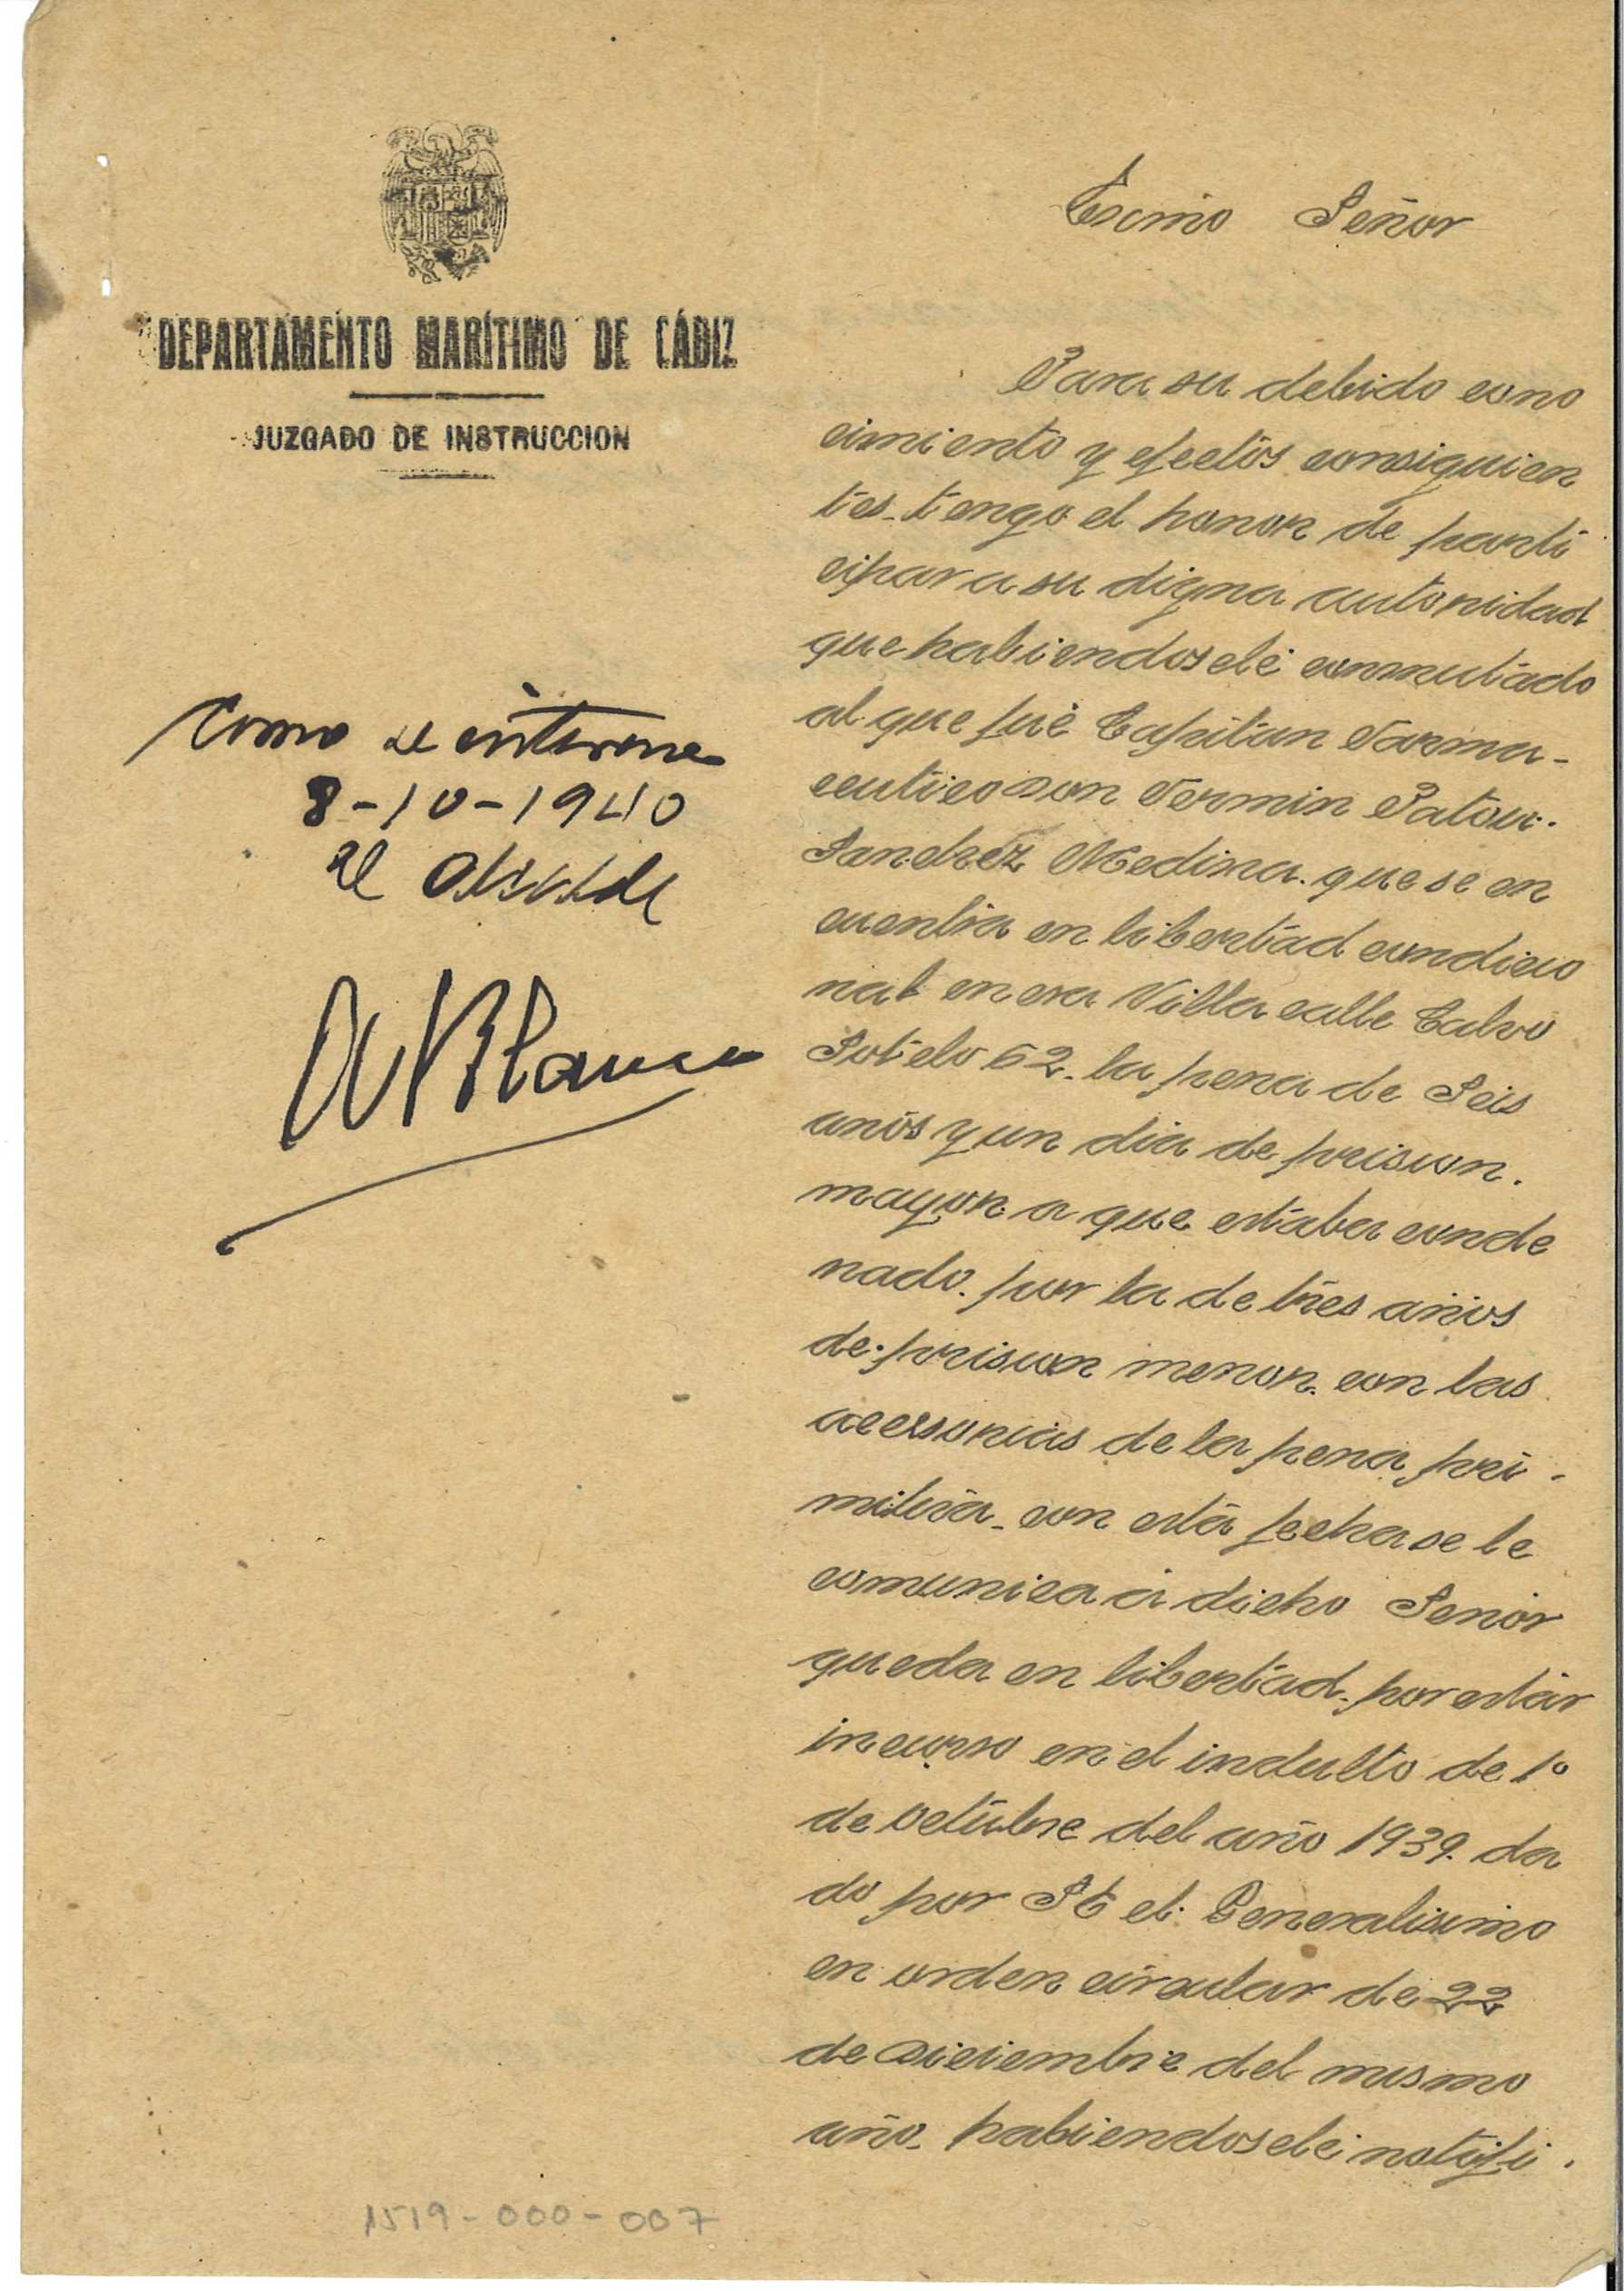 DEPARTAMENTO MARÍTIMO DE CÁDIZ
JUZGADO DE INSTRUCCION
Como se interesa
8-10-1940
el Alcalde
Blanco
Excmo Señor
Para su debido cono
cimiento y efectos consiguien
tes. tengo el honor de parti
cipar a su digna autoridad
que habiendosele conmutado
al que fué Capitan Farma-
ceutico Don Fermin Patou.
Sanchez Medina. que se en
cuentra en libertad condicio
nal en esa Villa calle Calvo
Sotelo 62. la pena de Seis
años y un dia de prision.
mayor a que estaba conde
nado. por la de tres años
de prision menor. con las
accesorias de la pena pri-
mitiva. con esta fecha se le
comunica a dicho Señor
queda en libertad. por estar
incurso en el indulto de 1º
de octubre del año 1939. da
do por SE el Generalisimo
en orden circular de 22
de Diciembre del mismo
año. habiendosele notifi.
1519-000-007